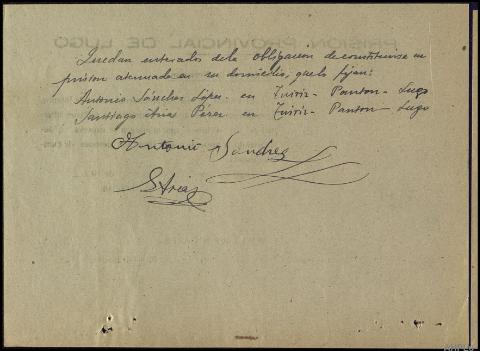 Quedan enterados de la obligacion de constituirse en
prision atenuada en su domicilio, que lo fijan:
Antonio Sánchez López en Tuiriz - Panton - Lugo
Santiago Arias Perez en Tuiriz - Panton - Lugo
Antonio Sanchez
S Arias